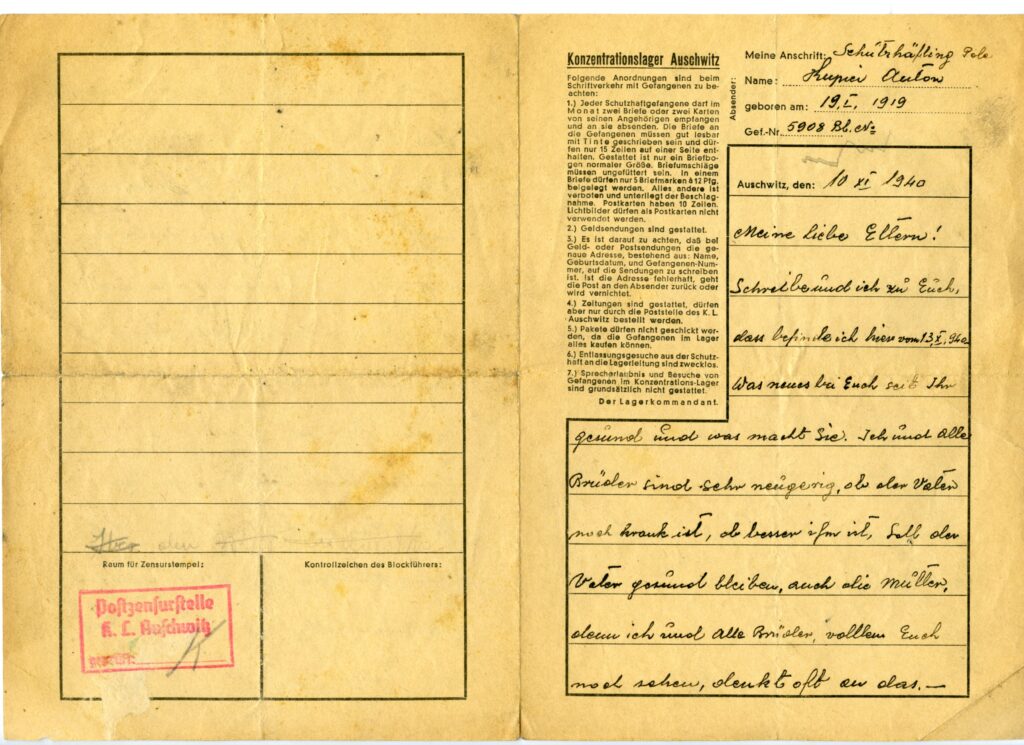 den
Raum für Zensurstempel:
Kontrollzeichen des Blockführers:
Postzensurstelle
K. L. Auschwitz
geprüft:
Konzentrationslager Auschwitz
Folgende Anordnungen sind beim
Schriftverkehr mit Gefangenen zu be-
achten:
1.) Jeder Schutzhaftgefangene darf im
Monat zwei Briefe oder zwei Karten
von seinen Angehörigen empfangen
und an sie absenden. Die Briefe an
die Gefangenen müssen gut lesbar
mit Tinte geschrieben sein und dür-
fen nur 15 Zeilen auf einer Seite ent-
halten. Gestattet ist nur ein Briefbo-
gen normaler Größe. Briefumschläge
müssen ungefüttert sein. In einem
Briefe dürfen nur 5 Briefmarken à 12 Pfg.
beigelegt werden. Alles andere ist
verboten und unterliegt der Beschlag-
nahme. Postkarten haben 10 Zeilen.
Lichtbilder dürfen als Postkarten nicht
verwendet werden.
2.) Geldsendungen sind gestattet.
3.) Es ist darauf zu achten, daß bei
Geld- oder Postsendungen die ge-
naue Adresse, bestehend aus: Name,
Geburtsdatum, und Gefangenen-Num-
mer, auf die Sendungen zu schreiben
ist. Ist die Adresse fehlerhaft, geht
die Post an den Absender zurück oder
wird vernichtet.
4.) Zeitungen sind gestattet, dürfen
aber nur durch die Poststelle des K. L.
Auschwitz bestellt werden.
5.) Pakete dürfen nicht geschickt wer-
den, da die Gefangenen im Lager
alles kaufen können.
6.) Entlassungsgesuche aus der Schutz-
haft an die Lagerleitung sind zwecklos.
7.) Sprecherlaubnis und Besuche von
Gefangenen im Konzentrations-Lager
sind grundsätzlich nicht gestattet.
Der Lagerkommandant.
Absender:
Meine Anschrift: Schutzhäftling Pole
Name: Kupiec Anton
geboren am: 19. I. 1919
Gef.-Nr. 5908 Bl. No
Auschwitz, den: 10 XI 1940
Meine liebe Eltern!
Schreibe und ich zu Euch,
dass befinde ich hier vom 13. X. 940
Was neues bei Euch seit Ihr
gesund und was macht Sie. Ich und alle
Brüder sind sehr neugerig, ob der Vater
noch krank ist, ob besser ihm ist, Soll der
Vater gesund bleiben, auch die Mutter,
denn ich und alle Brüder, vollten Euch
noch sehen, denkt oft an das. —